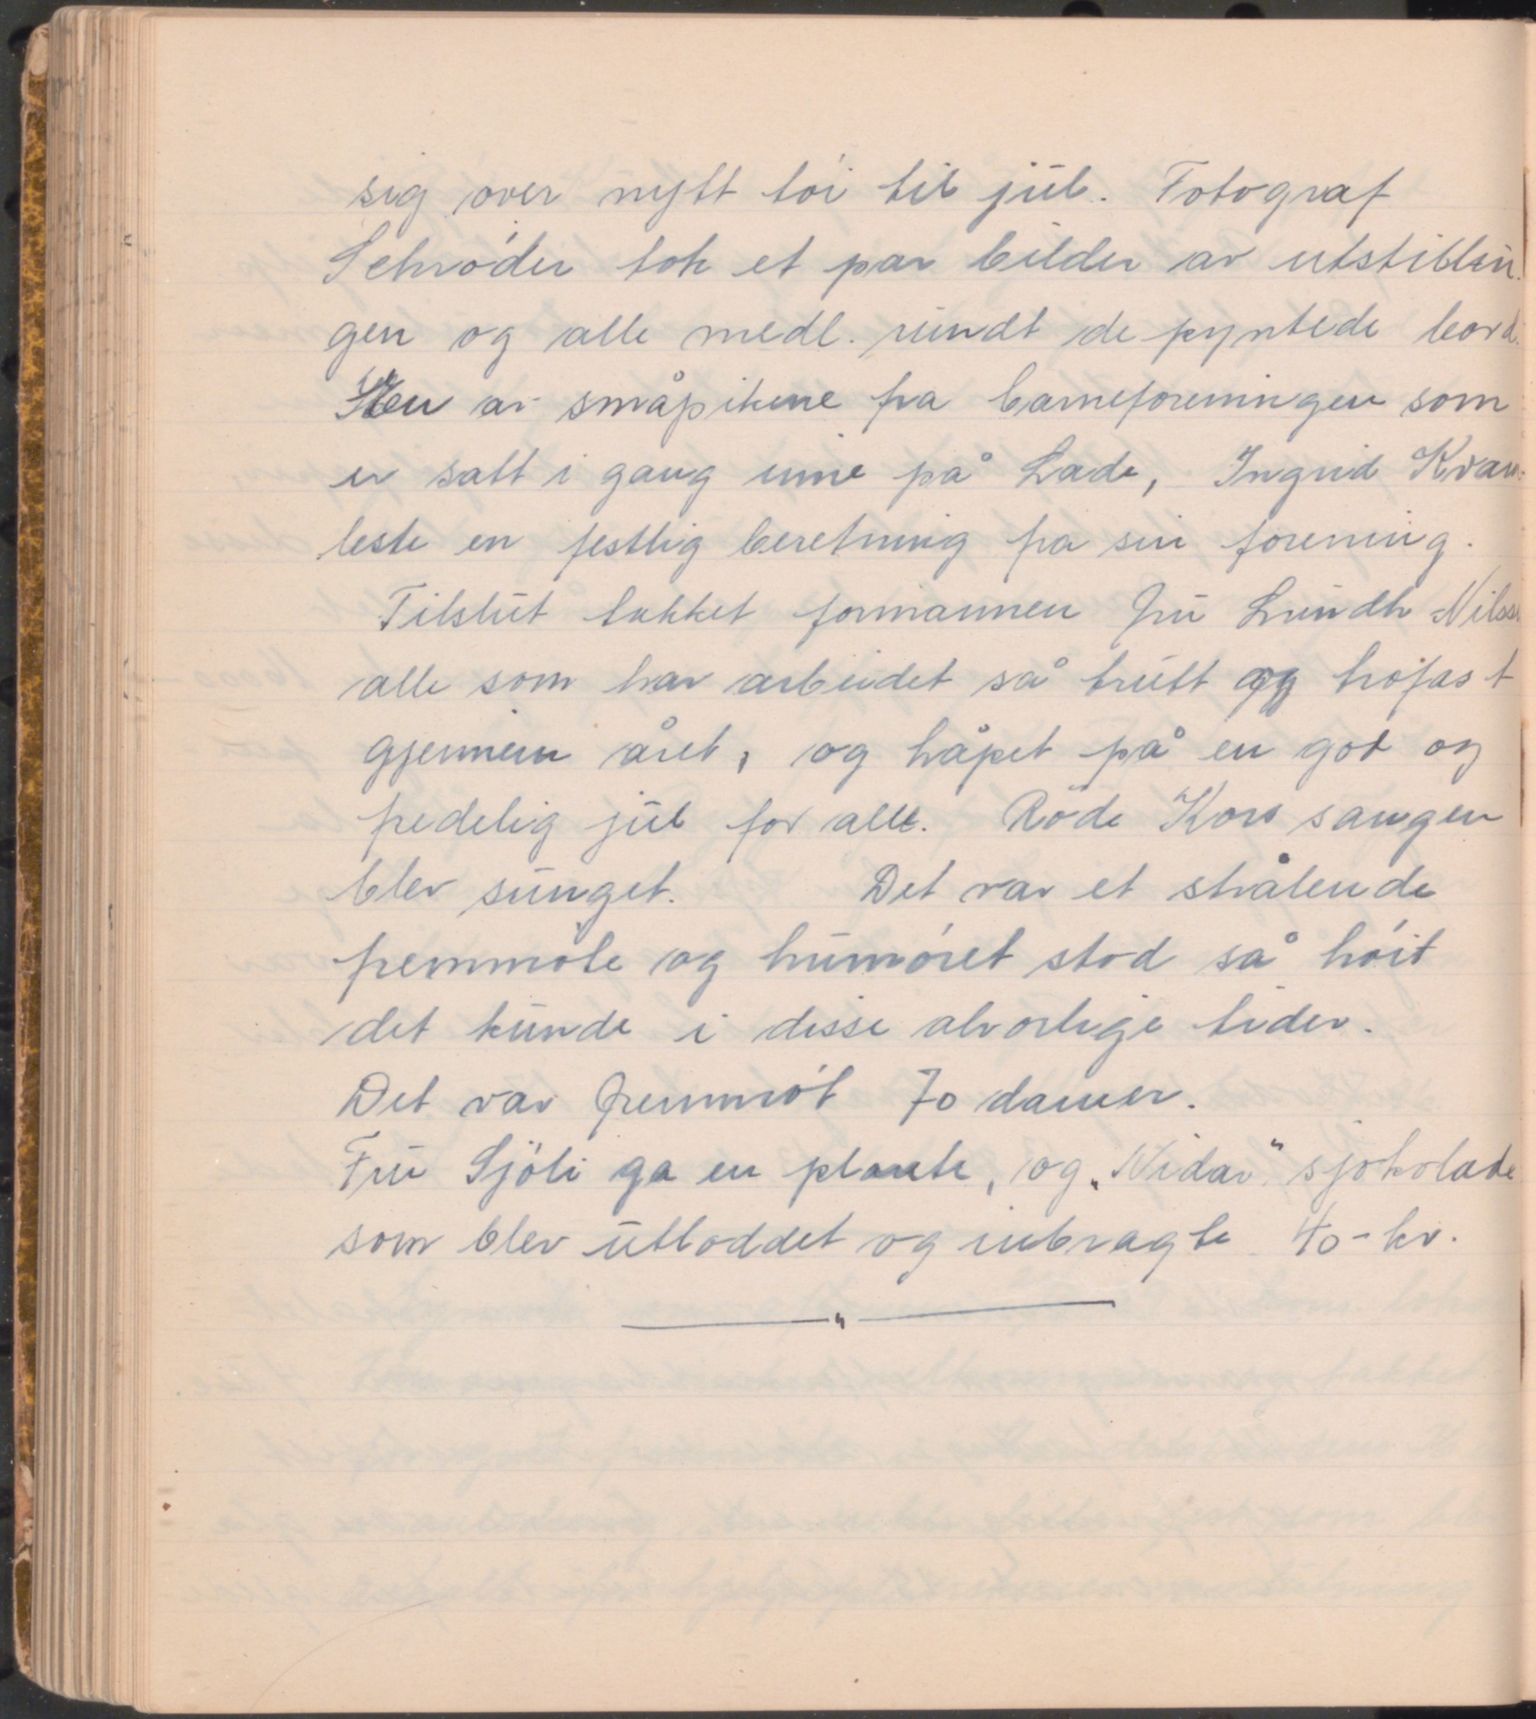 sig over nytt tói til jul. Fotograf
Schróder tok et par bilder av utstillin
gen og alle medl. rundt de pyntede bord.
En av småpikene fra barneforeningen som
er satt i gang inne på Lade, Ingrid Kvam
leste en festlig beretning fra sin forening.
Tilslut takket formannen fru Lundh Nilss
alle som har arbeidet så trutt og trofast
gjennem året, og håpet på en god og
fredelig jul for alle. Róde Kors sangen
blev sunget. Det var et strålende
fremmóte og humóret stod så hóit
det kunde i disse alvorlige tider.
Det var fremmót 70 damer.
Fru Sjöli ga en plante, og „Nidar" sjokolade
som blev utloddet og inbragte 40-kr.